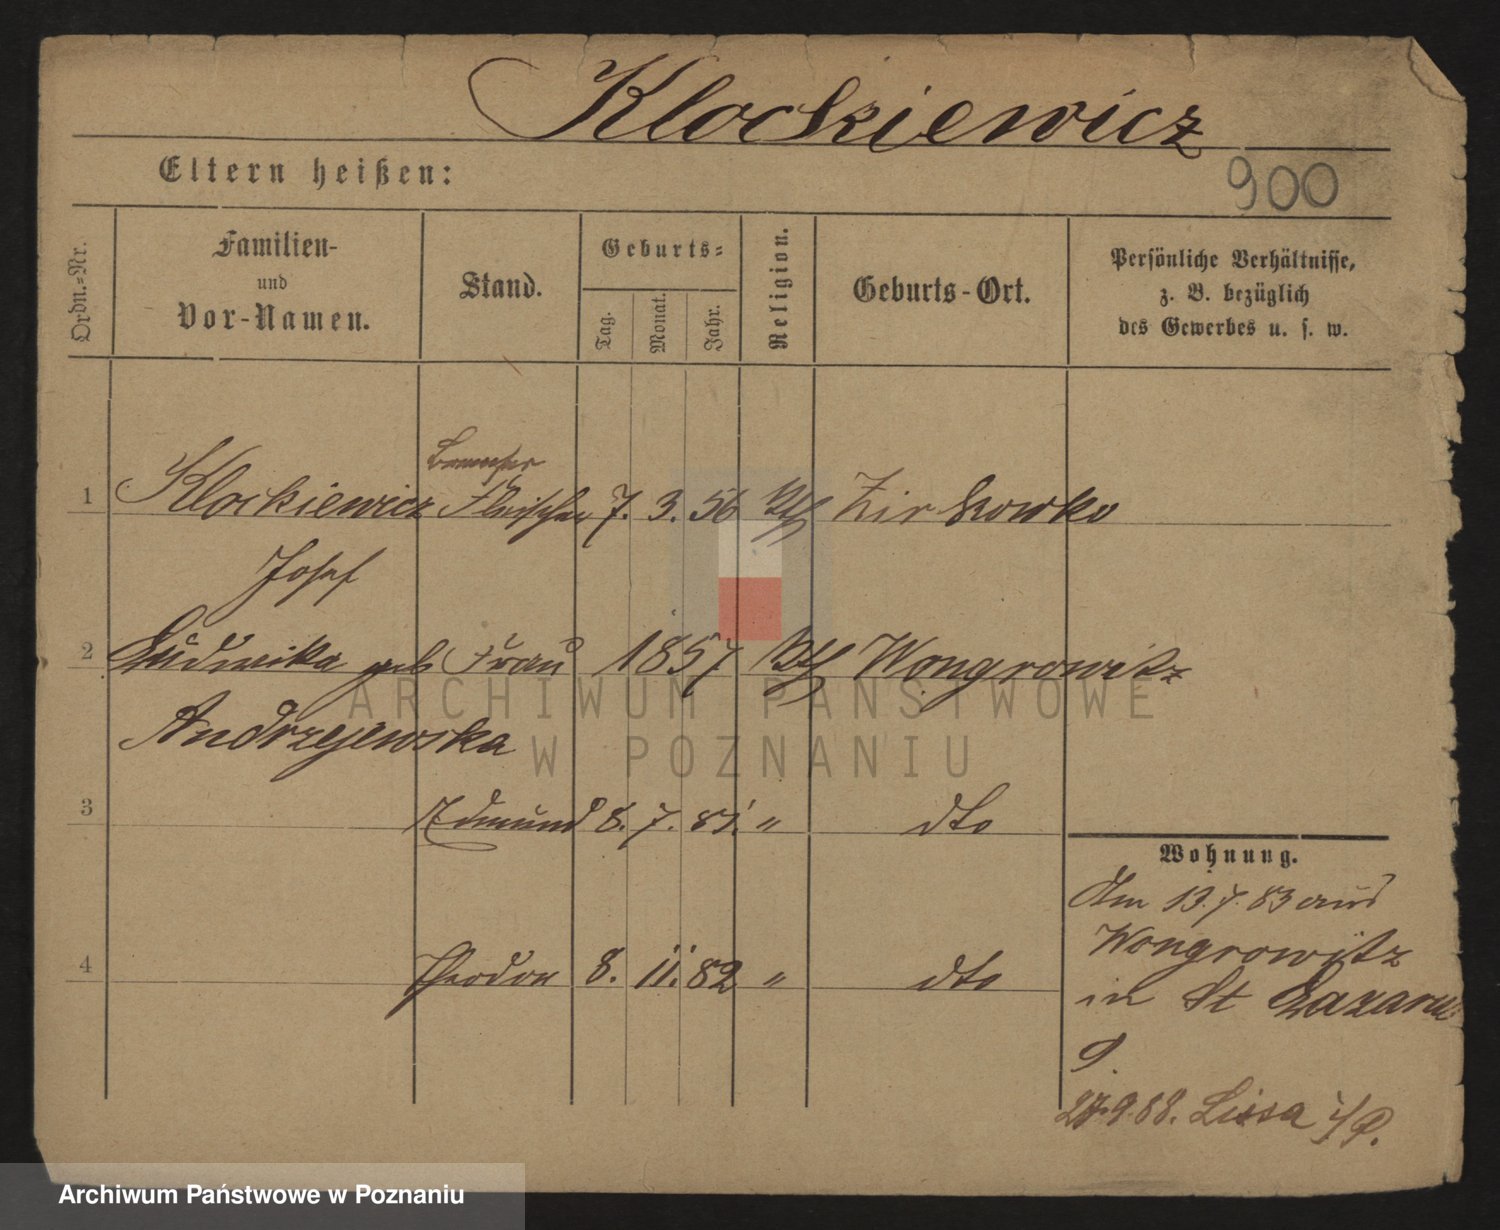 Klockiewicz
Eltern heißen:
900
Ordn.-Nr.
Familien-
und
Vor-Namen.
Stand.
Geburts-
Tag.
Monat.
Jahr.
Religion.
Geburts-Ort.
Persönliche Verhältnisse,
z. B. bezüglich
des Gewerbes u. s. w.
1 Klockiewicz Fleischer 7. 3. 56 Kth Zirkowko
Josef
2 Ludwika geb Frau 1857 Kth Wongrowitz
Andrzejewska
3 Edmund 8. 7. 81. " dto
4 Theodor 8. 11. 82 " dto
Wohnung.
Am 13.7.83 aus
Wongrowitz
in St Lazarus
9.
27.9.88. Lissa i/P.
ARCHIWUM PAŃSTWOWE
W POZNANIU
Archiwum Państwowe w Poznaniu